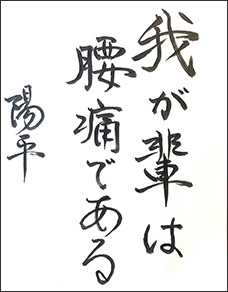 我が輩は
腰痛である
陽平